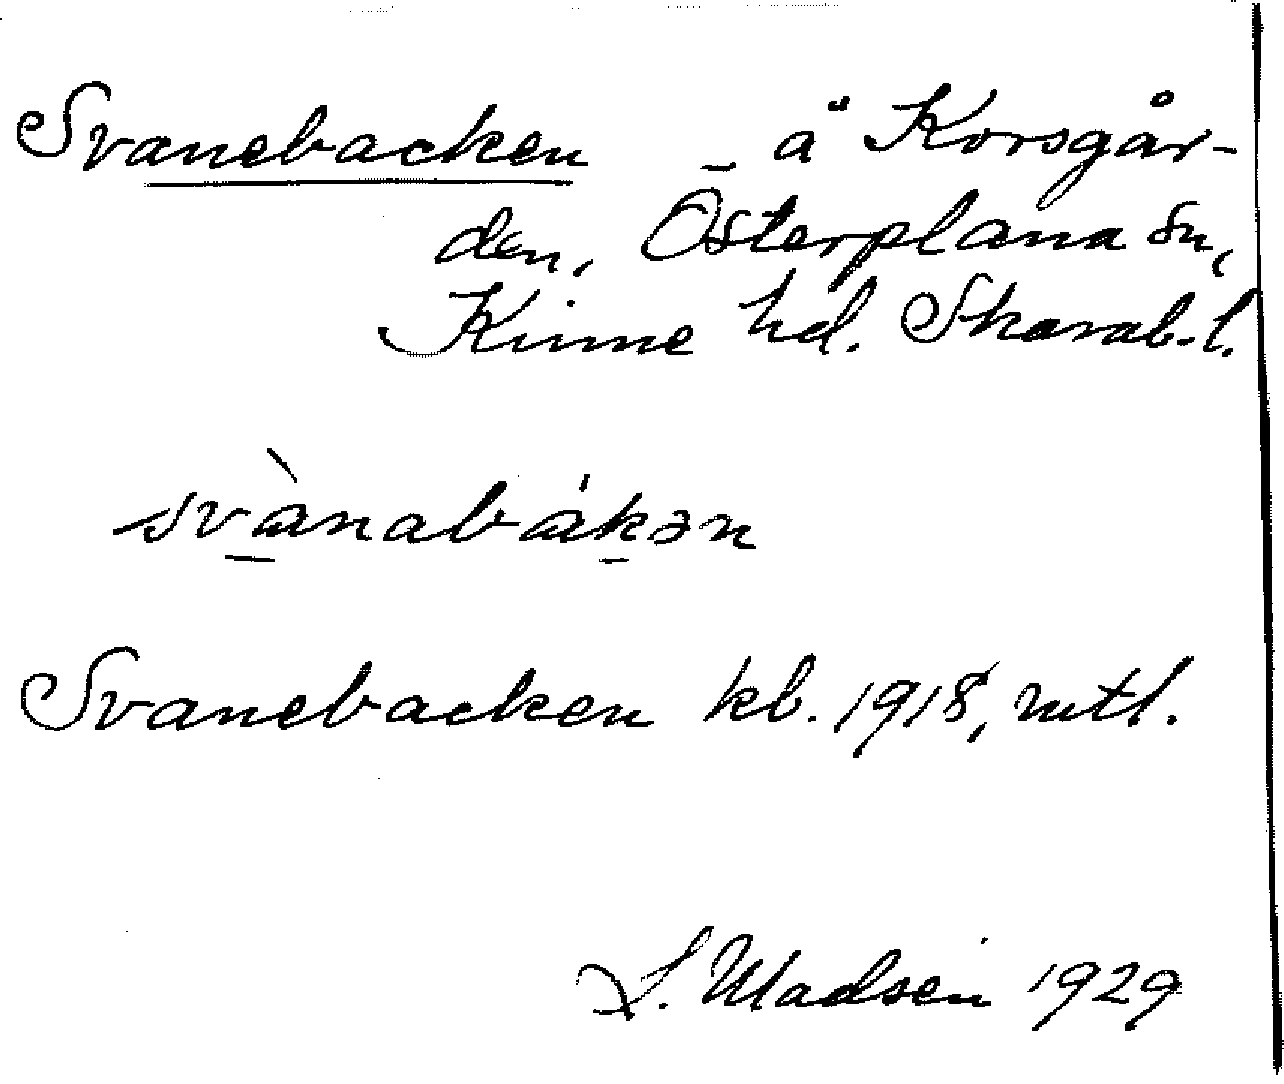 Svanebacken – å Korsgår-
den, Österplana sn,
Kinne hd. Skarab.l.
svànabákən
Svanebacken kb. 1918, mtl.
L. Madsen 1929